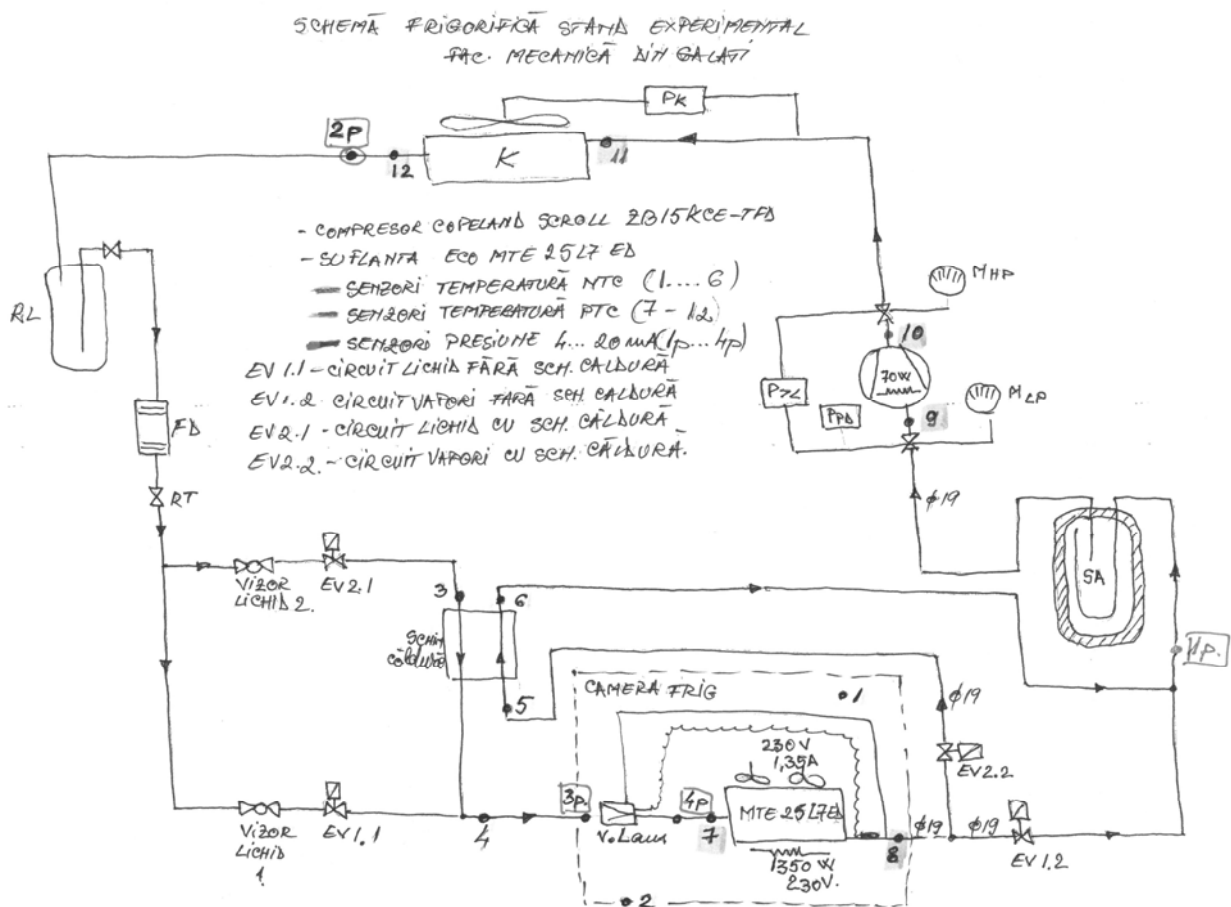 SCHEMĂ FRIGORIFICĂ STAND EXPERIMENTAL
FAC. MECANICĂ DIN GALATI
PK
2P
K
12
11
- COMPRESOR COPELAND SCROLL ZB15KCE-TFD
- SUFLANTA ECO MTE 25L7 ED
SENZORI TEMPERATURĂ NTC (1....6)
SENZORI TEMPERATURĂ PTC (7-12)
SENZORI PRESIUNE 4...20mA(1p...4p)
EV 1.1 - CIRCUIT LICHID FĂRĂ SCH. CALDURĂ
EV1.2 CIRCUIT VAPORI FARĂ SCH. CALDURĂ
EV2.1 - CIRCUIT LICHID CU SCH. CĂLDURĂ
EV2.2. - CIRCUIT VAPORI CU SCH. CĂLDURĂ.
RL
MHP
10
70W
PPD
9
MLP
FD
RT
φ19
SA
VIZOR
LICHID 2.
EV2.1
3
6
SCHIM
căldură
5
11p.
CAMERA FRIG
1
230V
1,35A
φ19
EV2.2
3p.
4p
VIZOR
LICHID
1.
EV1.1
4
V. Laus
7
MTE 25L7ED
8
φ19
φ19
EV1.2
1350 W
230V.
2